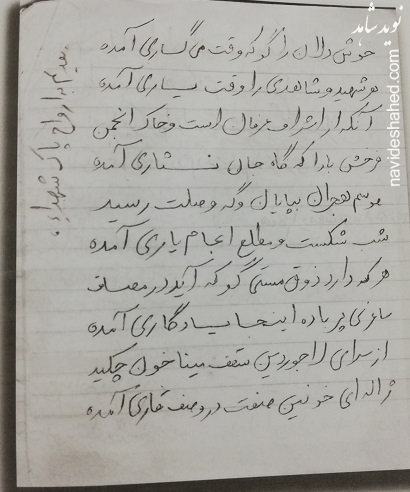 تقدیم به ارواح پاک شهداء.
خوش دلان را گو که وقت می گساری آمده
هر شهید و شاهدی را وقت یاری آمده
آنکه از اشراف عرفان است و خاک انجمن
مژدش بادا که گاه جان نثاری آمده
موسم هجران بپایان و گه وصلت رسید
شب شکست و مطلع انجام یاری آمده
هر که دارد ذوق مستی گو که آید در مصاف
ساغری پر باده اینجا یادگاری آمده
از سرای لاجوردین سقف مینا خون چکید
ژاله ای خونین صفت در وصف قاری آمده
نوید شاهد
navideshahed.com